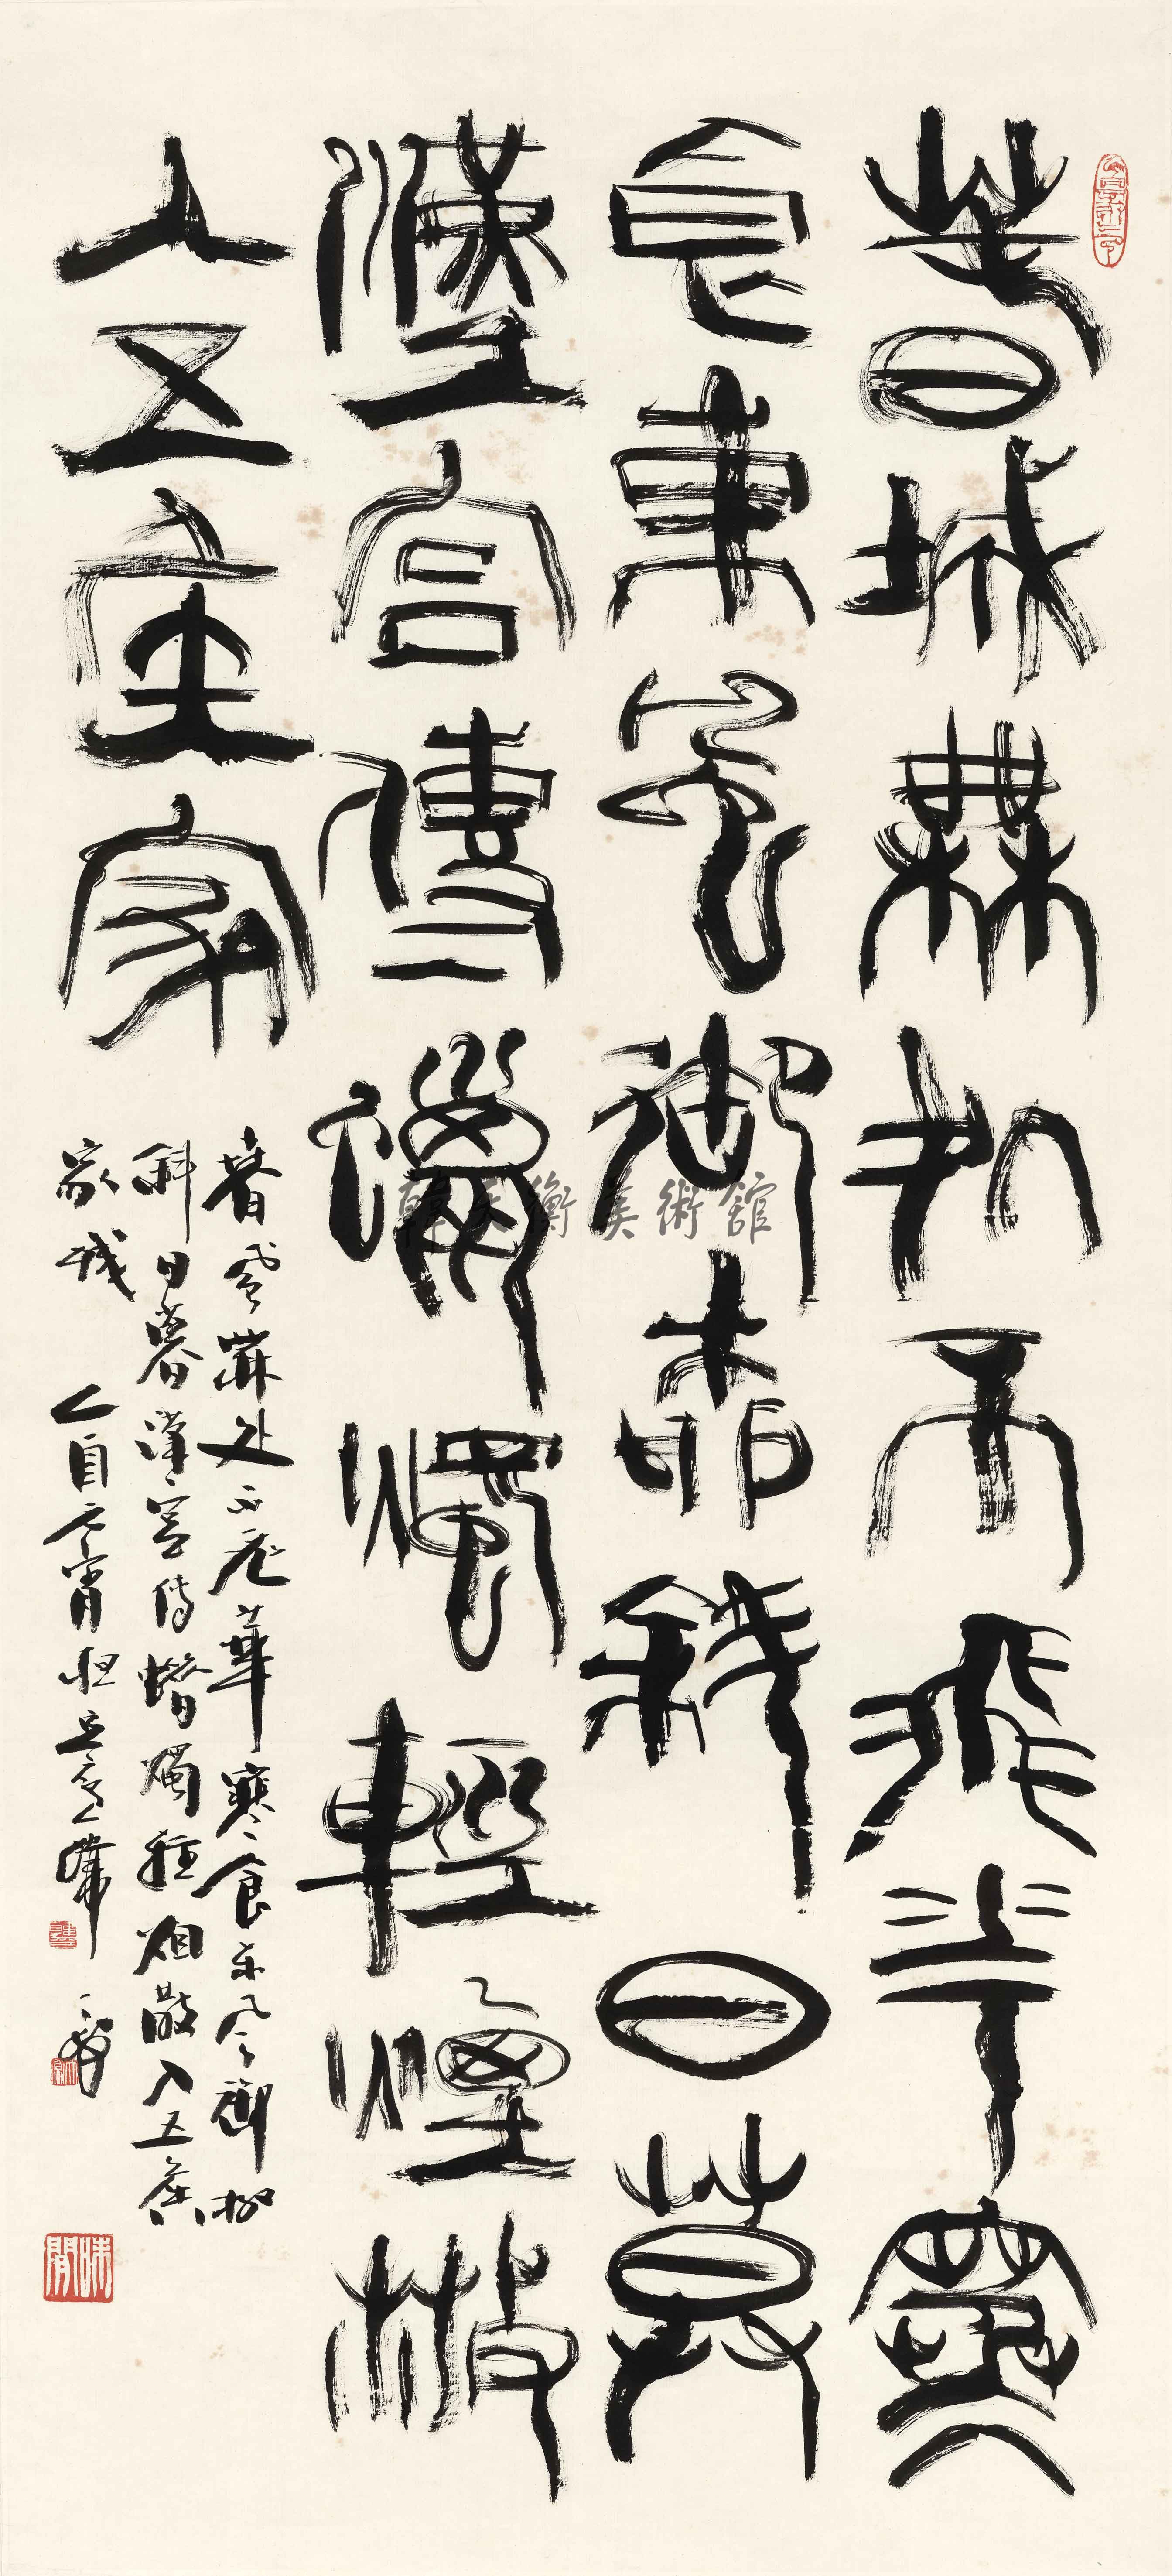 春城無処不飛華寒
食東風御柳斜日莫
漢宮傳蠟燭輕煙散
入五侯家
春風無处不飛華寒食東風御柳
斜日暮漢宮傳蜡燭輕烟散入五侯
家 城 乙酉元宵
韓天衡美術館